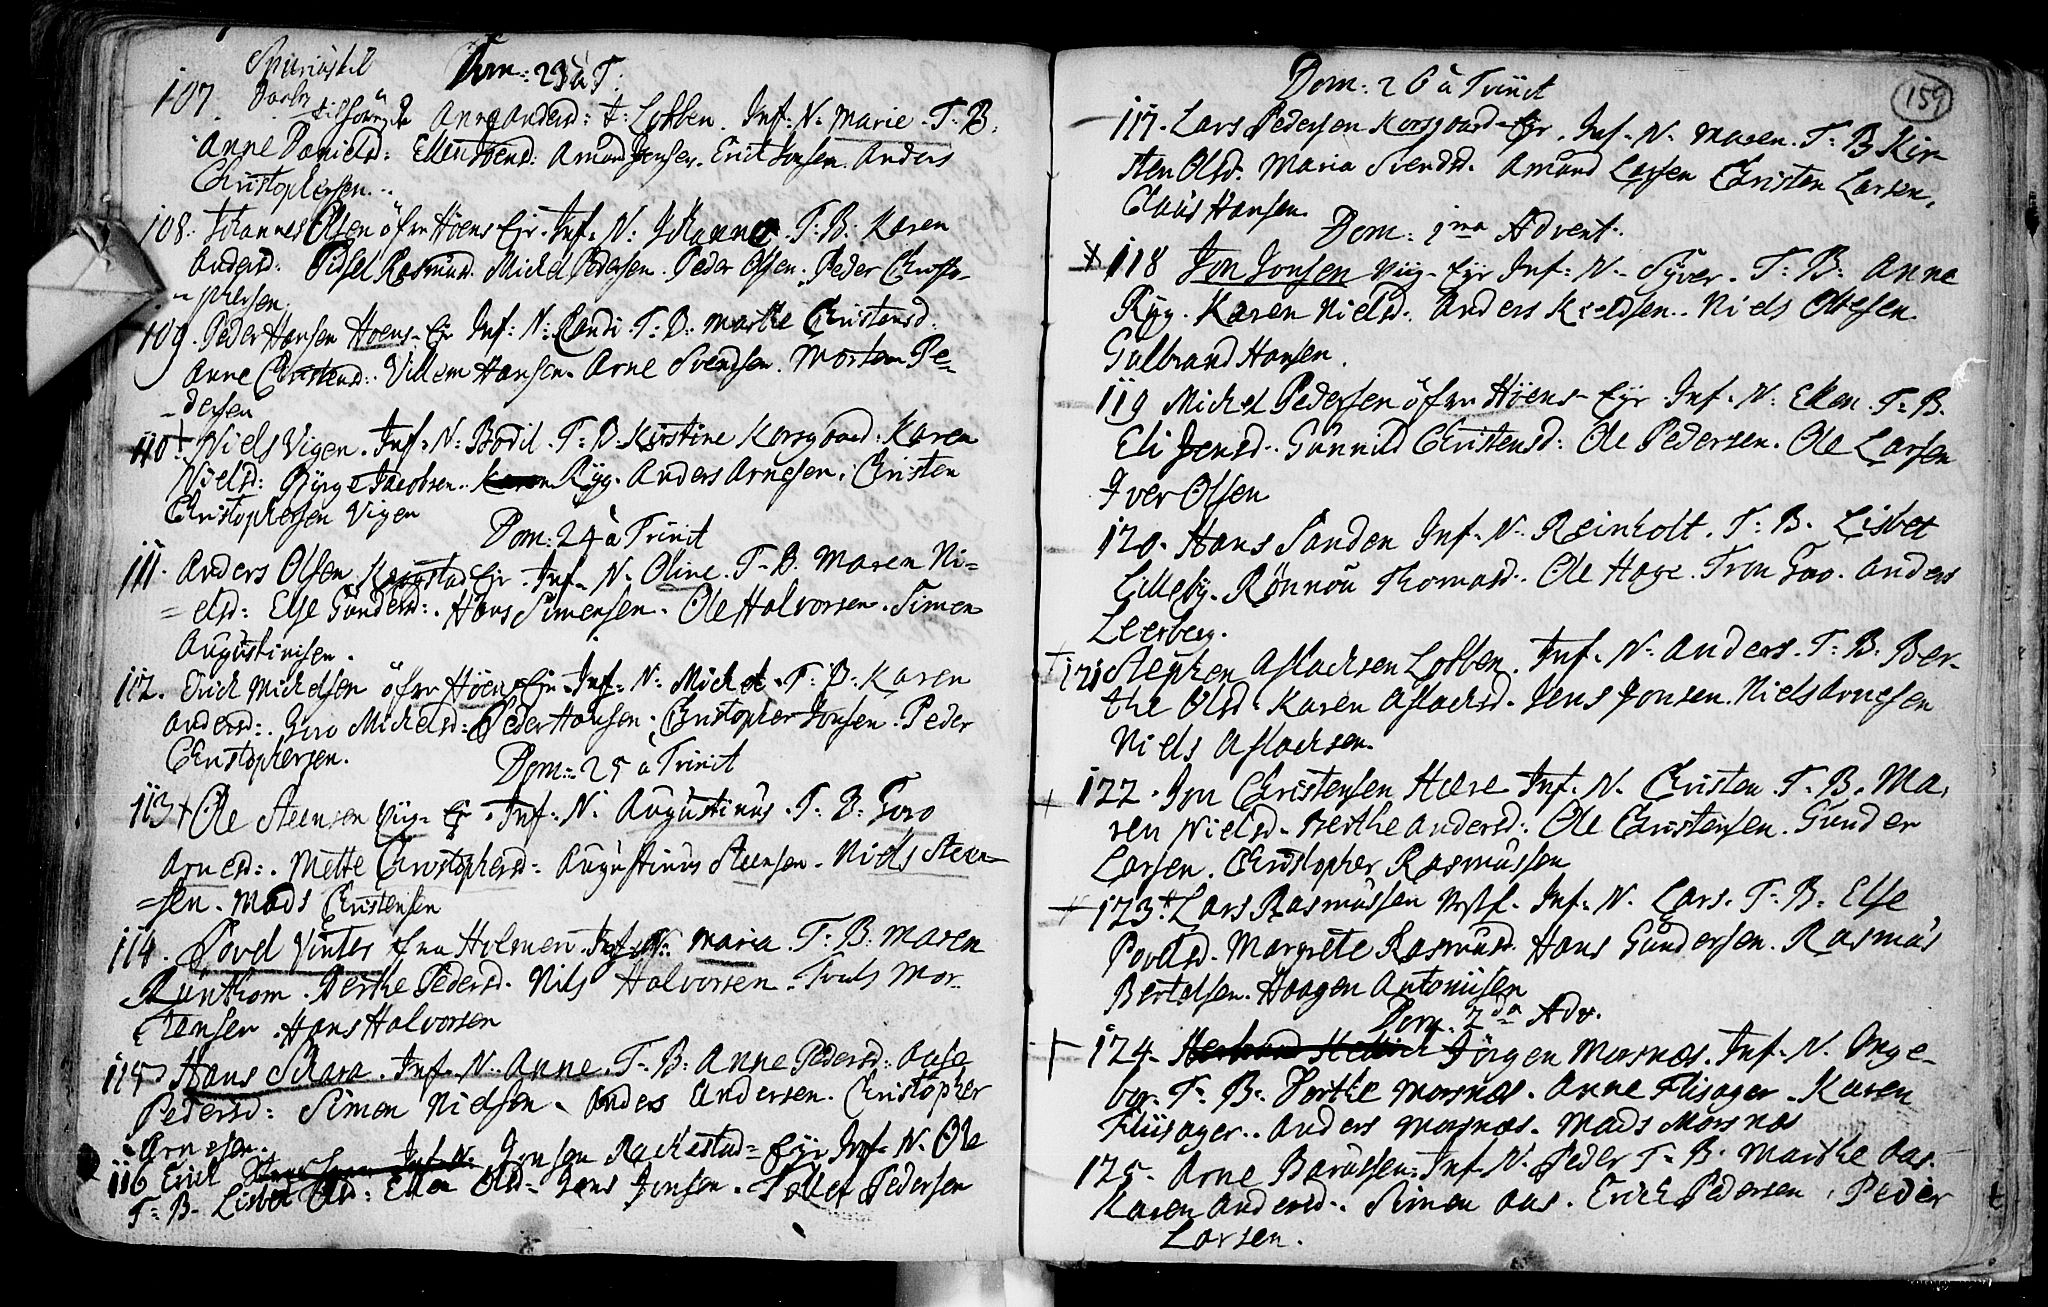 Dom: 23 à T:
107.
Anne Anders: t: Lobben. Inf: N: Marie. T: B.
Anne Daniels: Ellen Svends: Amund Jensen. Erich Jonsen. Anders
Christophersen.
108. Johannes Olsen öfre Höens Eyr. Inf: N: Johanne. T: B: Karen
Andersd: Sidsel Rasmusd. Michel Pedersen. Peder Olsen. Peder Christo-
phersen.
109. Peder Hansen Höens Eyr Inf: N: Randi. T: B: Marthe Christensd.
Anne Christensd: Villem Hansen. Arne Svendsen. Morten Pe-
dersen
110 † Niels Vigen. Inf: N: Bodil. T: B. Kirstine Korsgaard. Karen
Nielsd: Byrge Jacobsen. Ryg. Anders Arnesen. Christen
Christophersen Vigen
Dom: 24 à Trinit
111. Anders Olsen Kaggestad Eyr. Inf: N. Oline. T. B. Maren Ni=
=elsd: Else Gundersd: Hans Simensen. Ole Halvorsen. Simen
Augustinisen.
112. Erich Michelsen öfre Höens Eyr. Inf: N: Michel. T: B. Karen
Andersd: Goro Michelsd: Peder Hansen. Christopher Jonsen. Peder
Christophersen.
Dom: 25 à Trinit
113 † Ole Steensen Viig Ej. Inf: N: Augustinus. T: B: Goro
Arnesd: Mette Christophersd: Augustinus Steensen. Niels Steen
=sen. Mads Christensen
114. Povel Vinter fra Holmen. Inf: N: Maria. T: B: Maren
Berthe Pedersd. Nils Halvorsen. Truls Mor-
tensen. Hans Halvorsen
115 Hans Skara. Inf: N: Anne. T: B: Anne Pedersd: Aase
Pedersd: Simen Nielsen. Anders Andersen. Christopher
Arnesen.
116 Erich Jonsen Rackestad= Eyr Inf: N. Ole
T: B. Lisbet Olsd: Ellen Olsd= Jens Jonsen. Tollef Pedersen
159
Dom: 26 à Trinit
117. Lars Pedersen Korsgaard Eyr. Inf: N. Maren. T: B Kir-
sten Olsd. Maria Svendsd. Amund Larsen Christen Larsen.
Claus Hansen.
Dom: 1ma Advent.
118 Jon Jonsen Viig- Eyr Inf: N: Syver. T: B: Anne
Ryg. Karen Nielsd. Anders Kieldsen. Niels Olsen.
Gulbrand Hansen.
119 Michel Pedersen öfre Höens- Eyr. Inf. N: Ellen. T: B.
Eli Jensd. Gunnild Christensd: Ole Pedersen. Ole Larsen
Iver Olsen
120. Hans Sanden Inf. N: Reinholt. T: B. Lisbet
Lilleby. Rönnou Thomasd. Ole Hage. Tron Goo. Anders
Leerberg.
† 121 Stephen Aslachsen Lobben. Inf. N: Anders. T: B: Ber-
the Olsd. Karen Aslachsd. Jens Jonsen. Niels Arnesen
Niels Aslachsen.
† 122. Jon Christensen Hære Inf: N. Christen. T: B. Ma-
ren Nielsd. Berthe Andersd: Ole Christensen. Gunder
Larsen. Christopher Rasmussen
123 † Lars Rasmussen Inf. N. Lars. T: B: Else
Povelsd. Margrete Rasmusd. Hans Gundersen. Rasmus
Bertelsen. Haagen Antonisen
Dom: 2da Adv.
† 124. Jörgen Morsnæs. Inf: N. Inge-
bor. T: B: Berthe Morsnæs. Anne Flisager. Karen
Fliisager. Anders Morsnæs. Mads Morsnæs
125. Arne Barussen. Inf. N. Peder T: B: Marthe Aas.
Karen Andersd. Simen Aas. Erich Pedersen. Peder
Larsen.